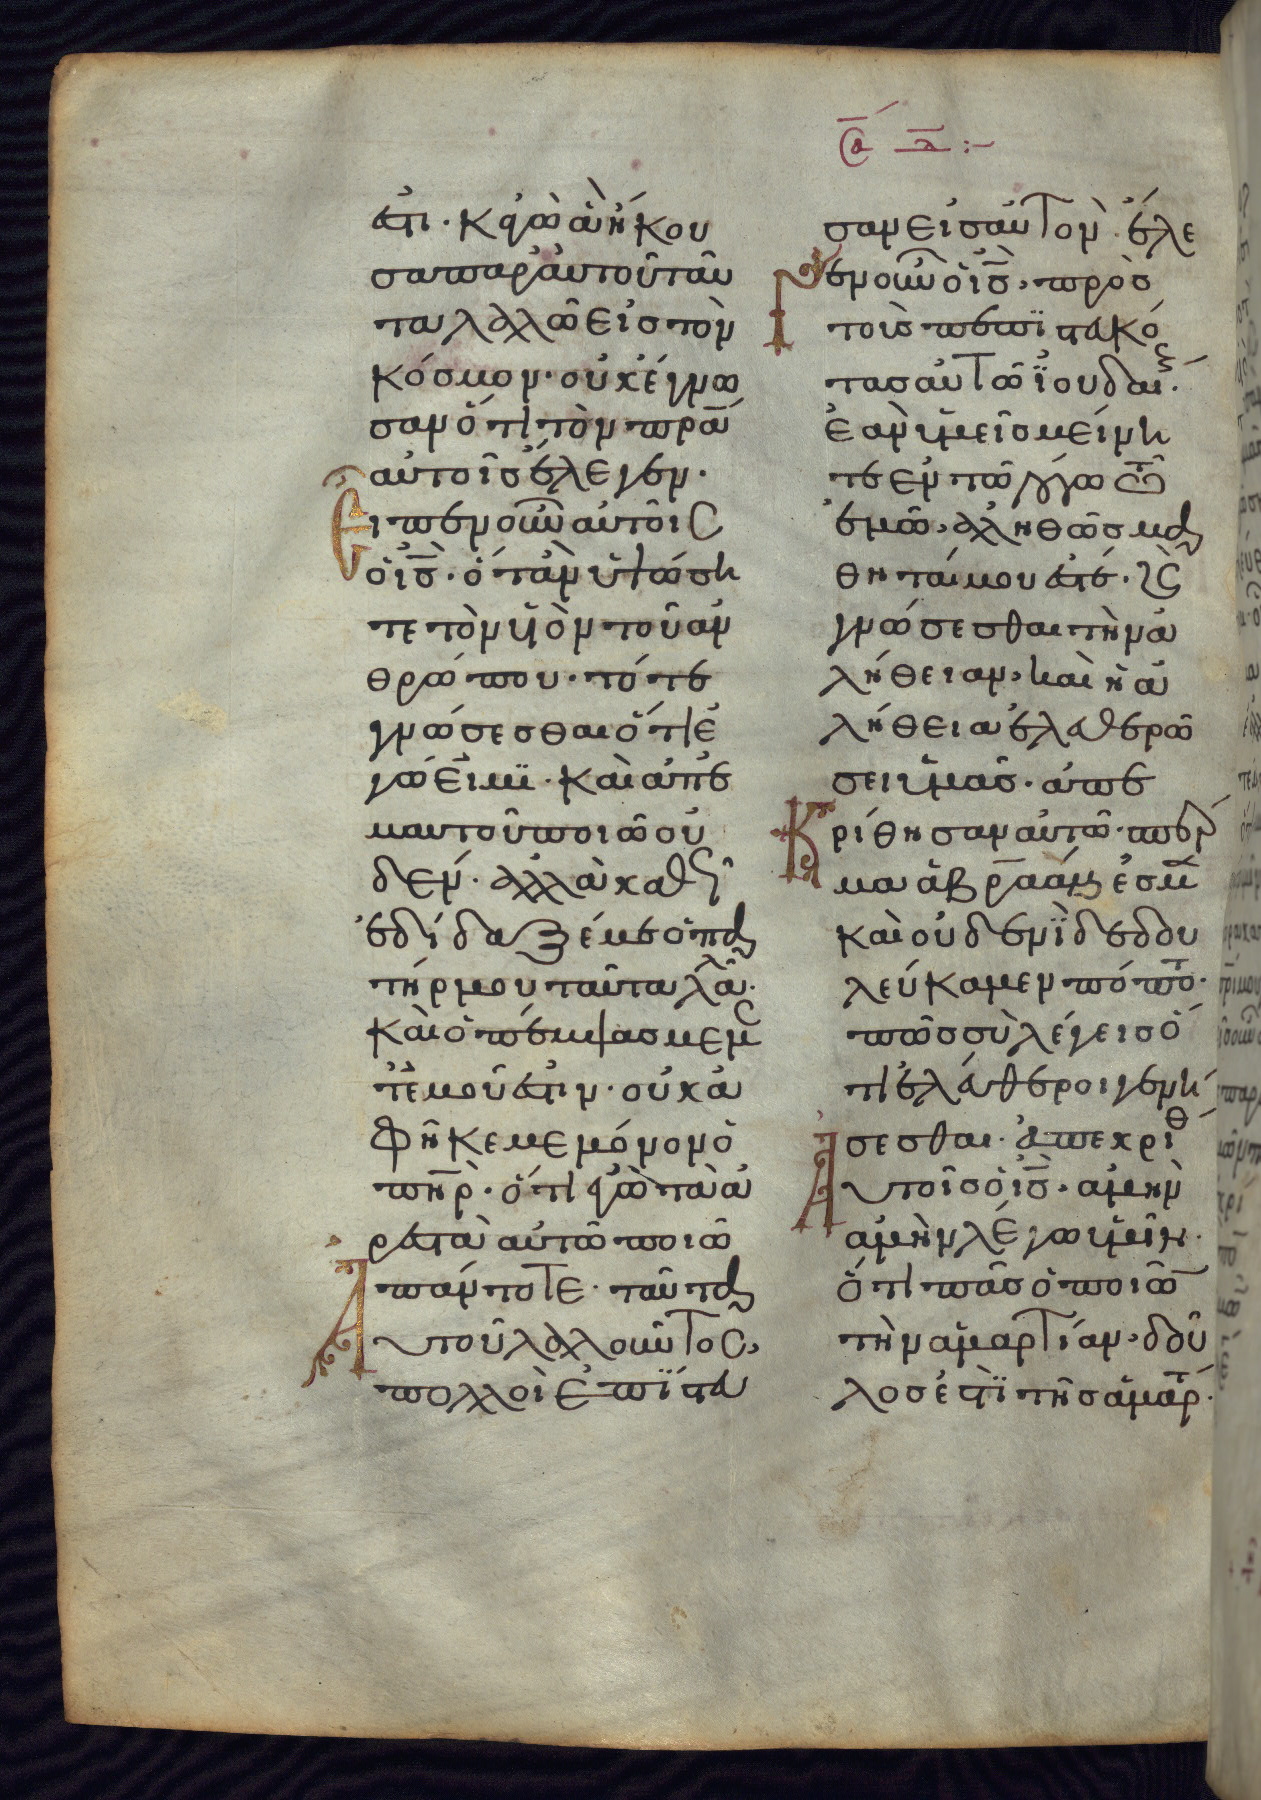 ἐστι· κἀγὼ ἃ ἤκου
σα παρ' αὐτοῦ ταῦ
τα λαλῶ εἰς τὸν
κόσμον· οὐκ ἔγνω
σαν ὅτι τὸν πρ̅α
αὐτοῖς ἔλεγεν·
Εἶπεν οὖν αὐτοῖς
ὁ ι̅ς̅· ὅταν ὑψώση
τε τὸν υἱὸν τοῦ ἀν
θρώπου· τότε
γνώσεσθαι ὅτι ἐ
γώ εἰμι· καὶ ἀπ' ἐ
μαυτοῦ ποιῶ οὐ
δέν· ἀλλὰ καθὼς
ἐδίδαξέ με ὁ πα
τήρ μου ταῦτα λαλῶ·
καὶ ὁ πέμψας με μ
ετ' ἐμοῦ ἐστιν· οὐκ ἀ
φῆκε με μόνον ὁ
π̅η̅ρ̅· ὅτι ἐγὼ τὰ ἀ
ρεστὰ αὐτῶ ποιῶ
πάντοτε· ταῦτα
Αὐτοῦ λαλοῦντος,
πολλοὶ ἐπίστευ
σα̅ α̅ :-
σαν εἰς αὐτὸν· ἔλε
Γεν οὖν ὁ ι̅ς̅, πρὸς
τοὺς πεπιστευκό
τας αὐτῶ ἰουδαί·
ἐὰν ὑμεῖς μείνη
τε ἐν τῶ λόγω τῶ
ἐμῶ, ἀληθῶς μα
θηταί μου ἐστέ· καὶ
γνώσεσθαι τὴν ἀ
λήθειαν, καὶ ἡ ἀ
λήθεια ἐλευθερώ
σει ὑμᾶς· ἀπε
Κρίθησαν αὐτῶ· σπέρ
μα ἀβραάμ ἐσμ̅
καὶ οὐδενὶ δεδου
λεύκαμεν πώποτ·
πῶς σὺ λέγεις ὅ
τι ἐλεύθεροι γενή
σεσθαι· ἀπεκρίθ
Αὐτοῖς ὁ ι̅ς̅· ἀμὴν
ἀμὴν λέγω ὑμῖν·
ὅτι πᾶς ὁ ποιῶν
τὴν ἁμαρτίαν, δοῦ
λος ἐστὶ τῆς ἁμαρτ·